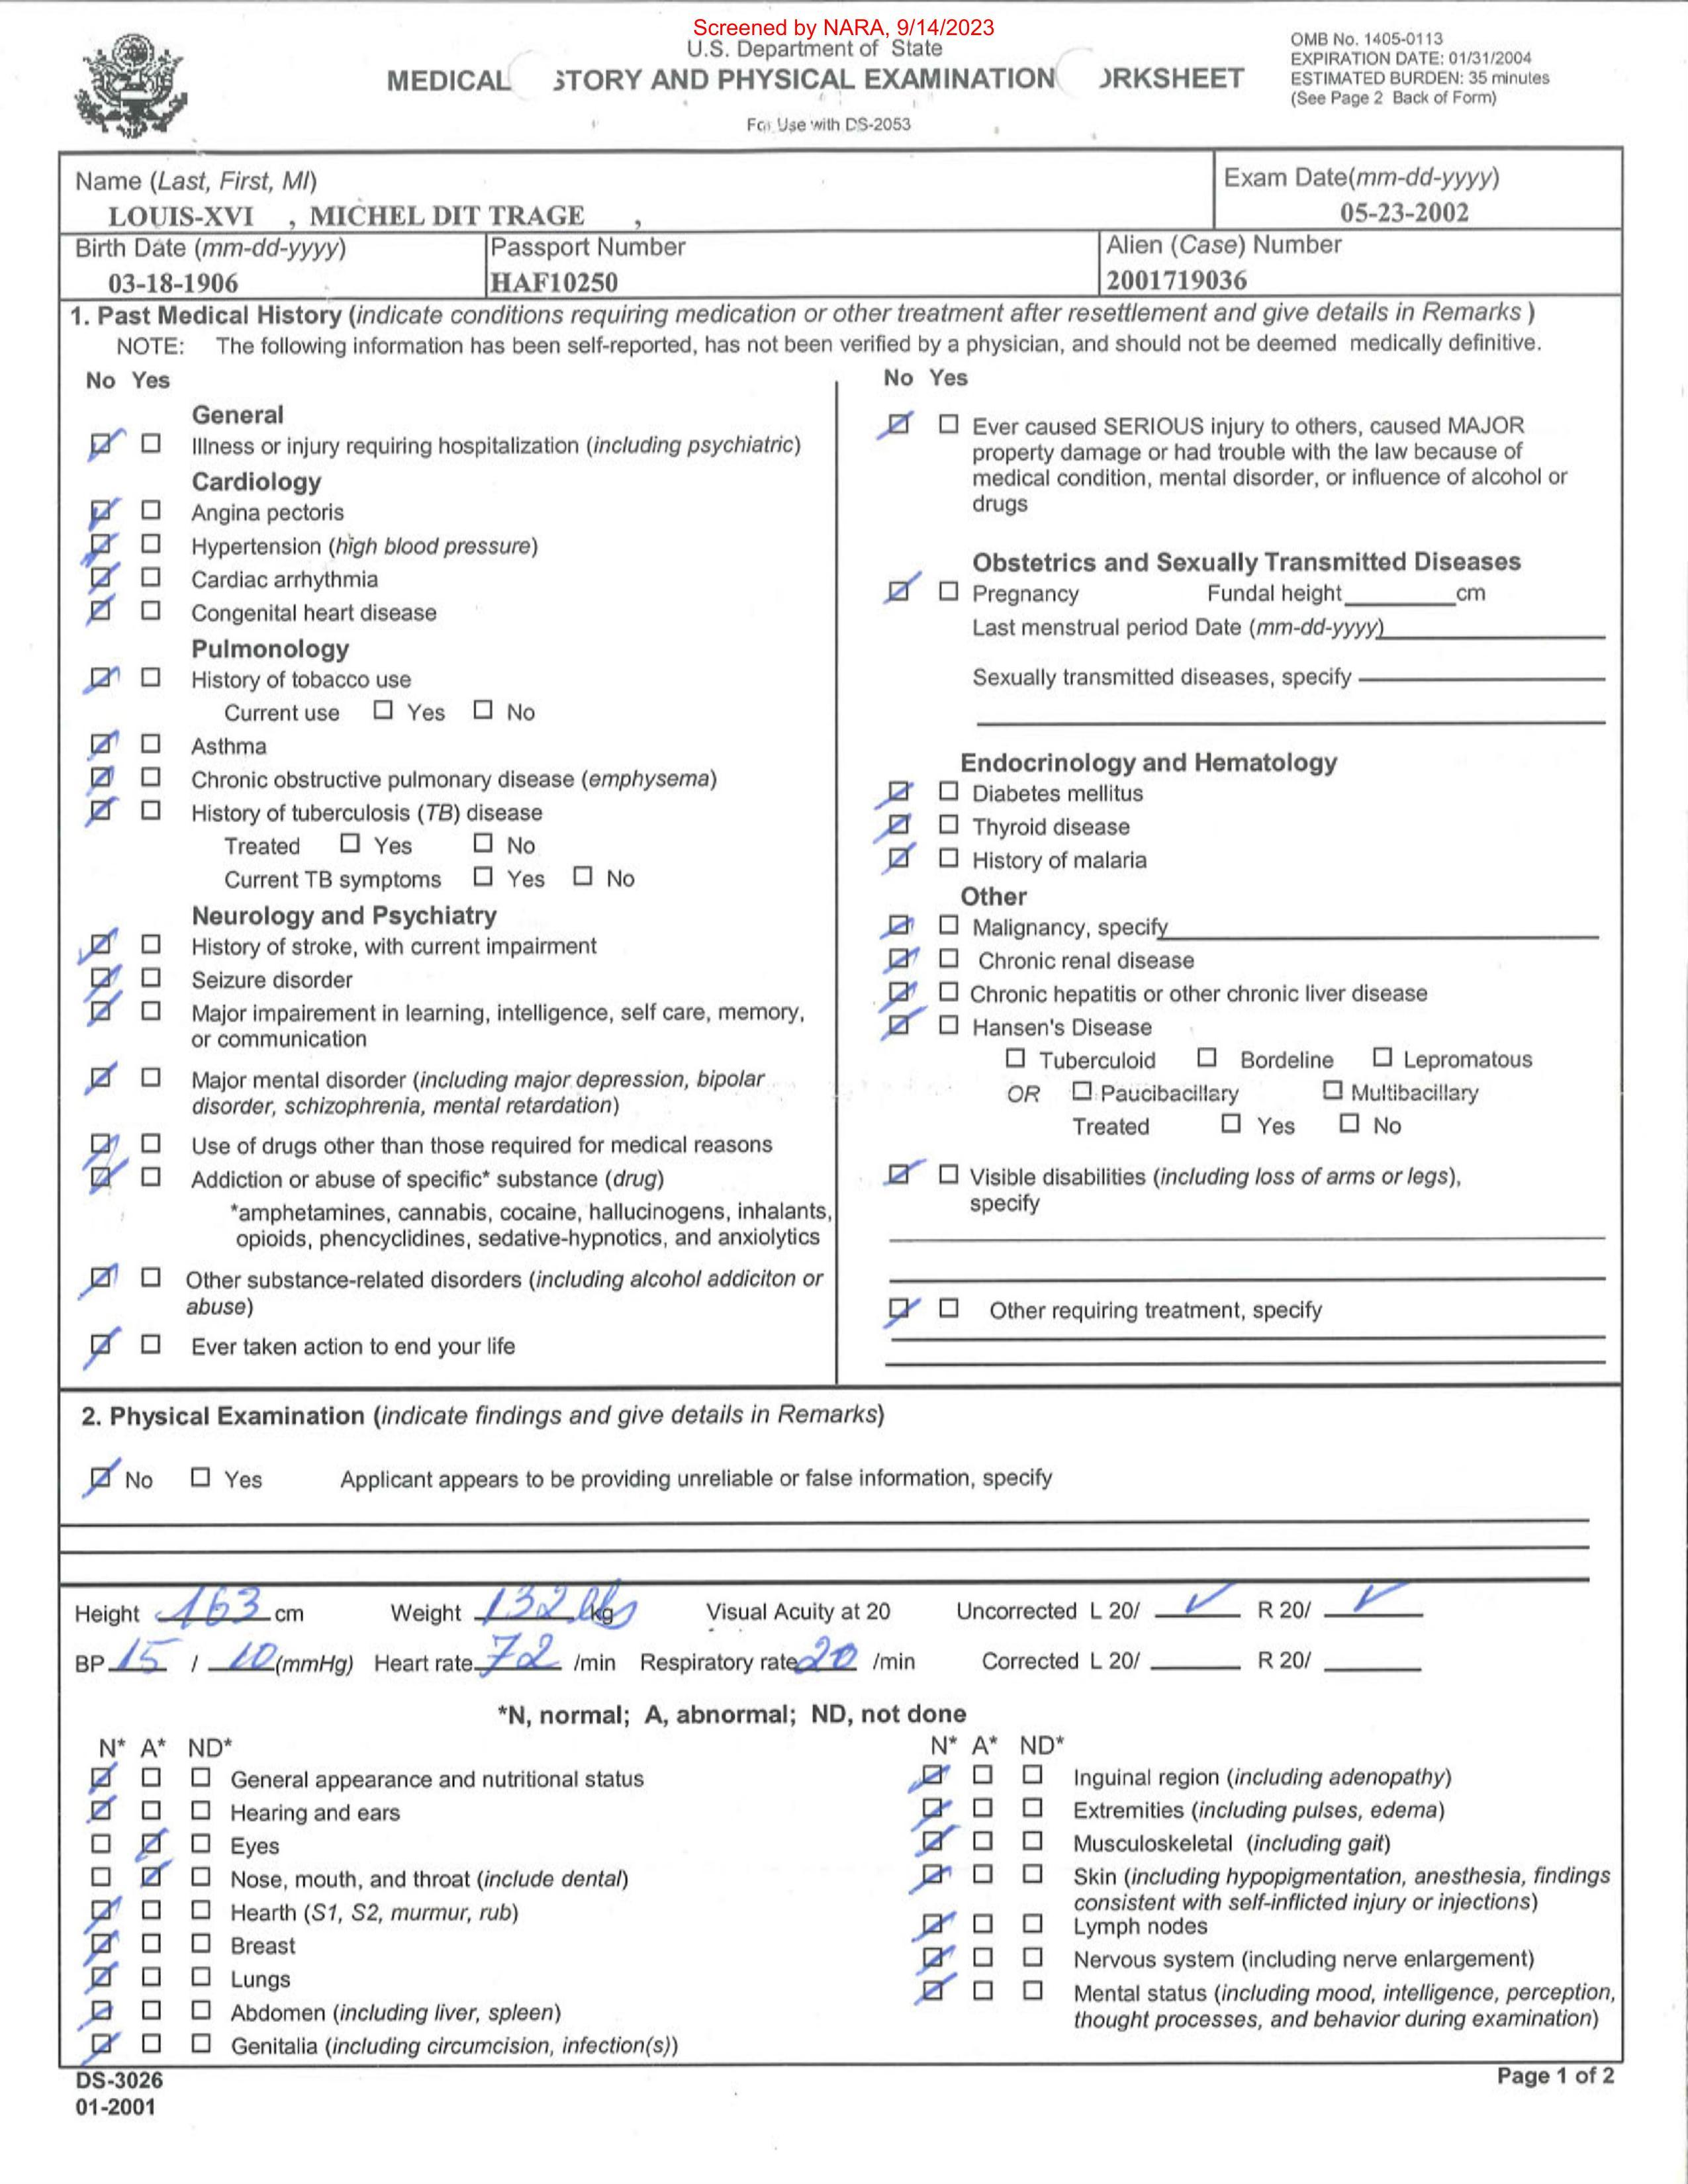 Screened by NARA, 9/14/2023
U.S. Department of State
MEDICAL STORY AND PHYSICAL EXAMINATION ORKSHEET
For Use with DS-2053
OMB No. 1405-0113
EXPIRATION DATE: 01/31/2004
ESTIMATED BURDEN: 35 minutes
(See Page 2 Back of Form)
Name (Last, First, MI)
LOUIS-XVI , MICHEL DIT TRAGE ,
Exam Date(mm-dd-yyyy)
05-23-2002
Birth Date (mm-dd-yyyy)
03-18-1906
Passport Number
HAF10250
Alien (Case) Number
2001719036
1. Past Medical History (indicate conditions requiring medication or other treatment after resettlement and give details in Remarks )
NOTE: The following information has been self-reported, has not been verified by a physician, and should not be deemed medically definitive.
No Yes
General
Illness or injury requiring hospitalization (including psychiatric)
Cardiology
Angina pectoris
Hypertension (high blood pressure)
Cardiac arrhythmia
Congenital heart disease
Pulmonology
History of tobacco use
Current use Yes No
Asthma
Chronic obstructive pulmonary disease (emphysema)
History of tuberculosis (TB) disease
Treated Yes No
Current TB symptoms Yes No
Neurology and Psychiatry
History of stroke, with current impairment
Seizure disorder
Major impairement in learning, intelligence, self care, memory,
or communication
Major mental disorder (including major depression, bipolar
disorder, schizophrenia, mental retardation)
Use of drugs other than those required for medical reasons
Addiction or abuse of specific* substance (drug)
*amphetamines, cannabis, cocaine, hallucinogens, inhalants,
opioids, phencyclidines, sedative-hypnotics, and anxiolytics
Other substance-related disorders (including alcohol addiciton or
abuse)
Ever taken action to end your life
No Yes
Ever caused SERIOUS injury to others, caused MAJOR
property damage or had trouble with the law because of
medical condition, mental disorder, or influence of alcohol or
drugs
Obstetrics and Sexually Transmitted Diseases
Pregnancy Fundal height cm
Last menstrual period Date (mm-dd-yyyy)
Sexually transmitted diseases, specify
Endocrinology and Hematology
Diabetes mellitus
Thyroid disease
History of malaria
Other
Malignancy, specify
Chronic renal disease
Chronic hepatitis or other chronic liver disease
Hansen's Disease
Tuberculoid Bordeline Lepromatous
OR Paucibacillary Multibacillary
Treated Yes No
Visible disabilities (including loss of arms or legs),
specify
Other requiring treatment, specify
2. Physical Examination (indicate findings and give details in Remarks)
No Yes Applicant appears to be providing unreliable or false information, specify
Height 163 cm Weight 132 lbs kg Visual Acuity at 20 Uncorrected L 20/ ✓ R 20/ ✓
BP 15 / 10 (mmHg) Heart rate 72 /min Respiratory rate 20 /min Corrected L 20/ R 20/
*N, normal; A, abnormal; ND, not done
N* A* ND*
General appearance and nutritional status
Hearing and ears
Eyes
Nose, mouth, and throat (include dental)
Hearth (S1, S2, murmur, rub)
Breast
Lungs
Abdomen (including liver, spleen)
Genitalia (including circumcision, infection(s))
N* A* ND*
Inguinal region (including adenopathy)
Extremities (including pulses, edema)
Musculoskeletal (including gait)
Skin (including hypopigmentation, anesthesia, findings
consistent with self-inflicted injury or injections)
Lymph nodes
Nervous system (including nerve enlargement)
Mental status (including mood, intelligence, perception,
thought processes, and behavior during examination)
DS-3026
01-2001
Page 1 of 2